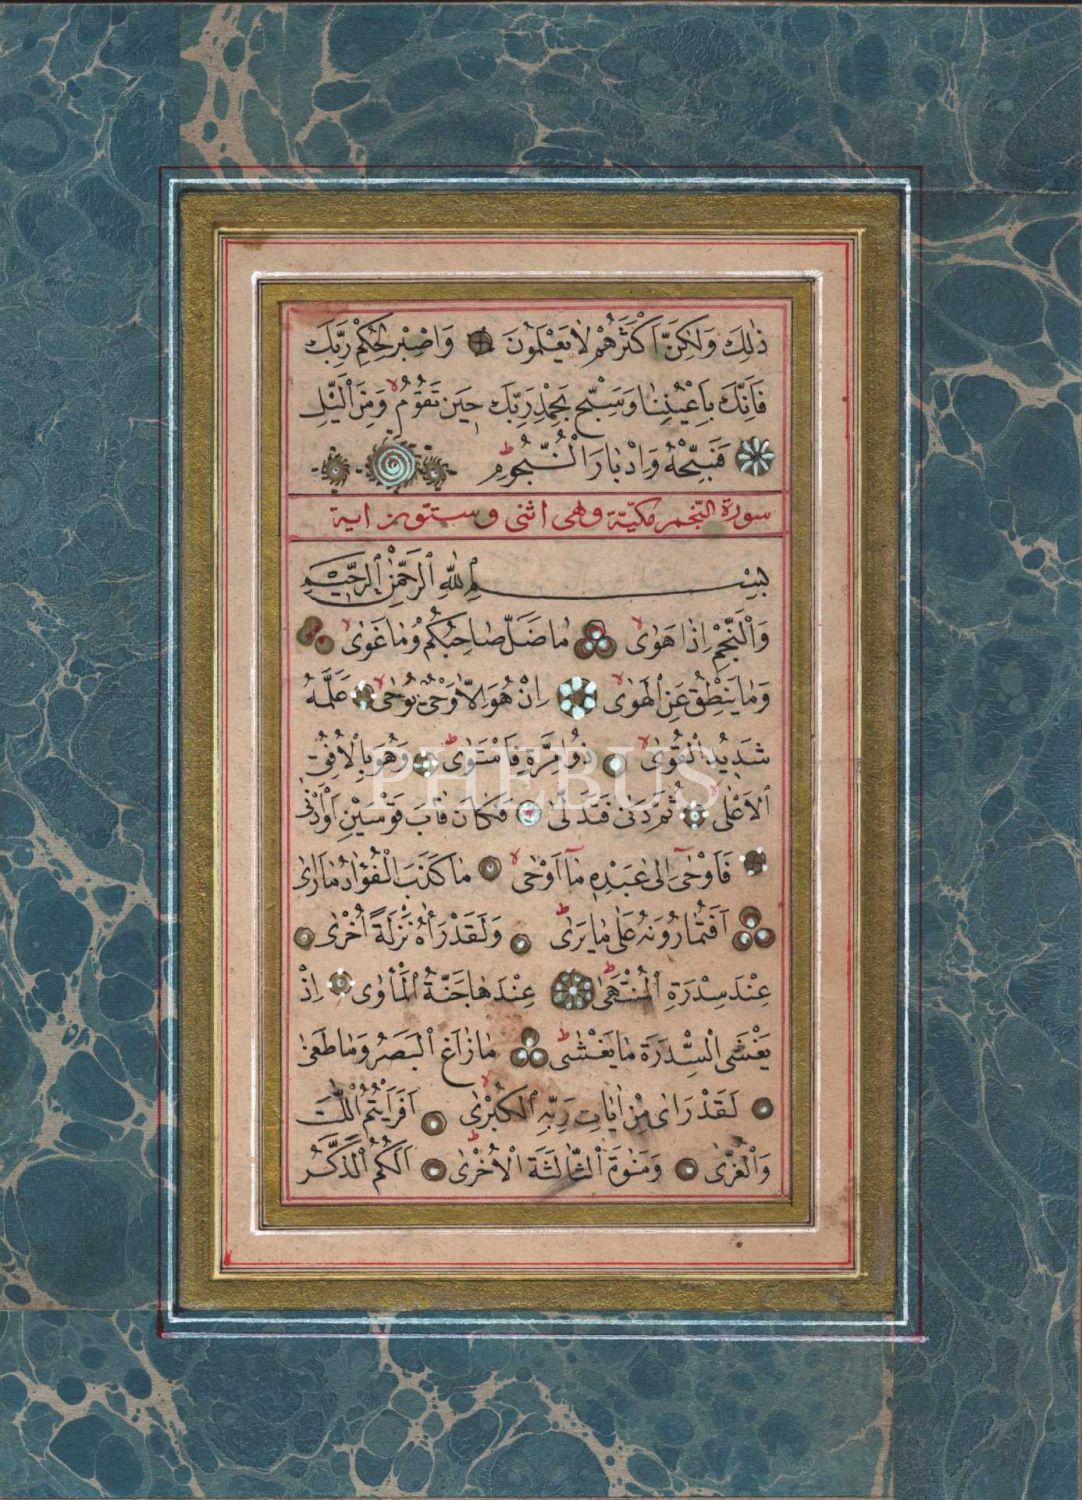 ذٰلِكَ وَلٰكِنَّ اَكْثَرَهُمْ لَا يَعْلَمُونَ وَاصْبِرْ لِحُكْمِ رَبِّكَ
فَاِنَّكَ بِاَعْيُنِنَا وَسَبِّحْ بِحَمْدِ رَبِّكَ حِينَ تَقُومُ وَمِنَ الَّيْلِ
فَسَبِّحْهُ وَاِدْبَارَ النُّجُومِ
سورة النجم مكيّة وهى اثنى وستون اية
بِسْمِ اللّٰهِ الرَّحْمٰنِ الرَّحِيمِ
وَالنَّجْمِ اِذَا هَوٰى مَا ضَلَّ صَاحِبُكُمْ وَمَا غَوٰى
وَمَا يَنْطِقُ عَنِ الْهَوٰى اِنْ هُوَ اِلَّا وَحْىٌ يُوحٰى عَلَّمَهُ
شَدِيدُ الْقُوٰى ذُو مِرَّةٍ فَاسْتَوٰى وَهُوَ بِالْاُفُقِ
PHEBUS
الْاَعْلٰى ثُمَّ دَنٰى فَتَدَلّٰى فَكَانَ قَابَ قَوْسَيْنِ اَوْ اَدْنٰى
فَاَوْحٰى اِلٰى عَبْدِهِ مَا اَوْحٰى مَا كَذَبَ الْفُؤَادُ مَا رَاٰى
اَفَتُمَارُونَهُ عَلٰى مَا يَرٰى وَلَقَدْ رَاٰهُ نَزْلَةً اُخْرٰى
عِنْدَ سِدْرَةِ الْمُنْتَهٰى عِنْدَهَا جَنَّةُ الْمَأْوٰى اِذْ
يَغْشَى السِّدْرَةَ مَا يَغْشٰى مَا زَاغَ الْبَصَرُ وَمَا طَغٰى
لَقَدْ رَاٰى مِنْ اٰيَاتِ رَبِّهِ الْكُبْرٰى اَفَرَاَيْتُمُ اللَّاتَ
وَالْعُزّٰى وَمَنٰوةَ الثَّالِثَةَ الْاُخْرٰى اَلَكُمُ الذَّكَرُ